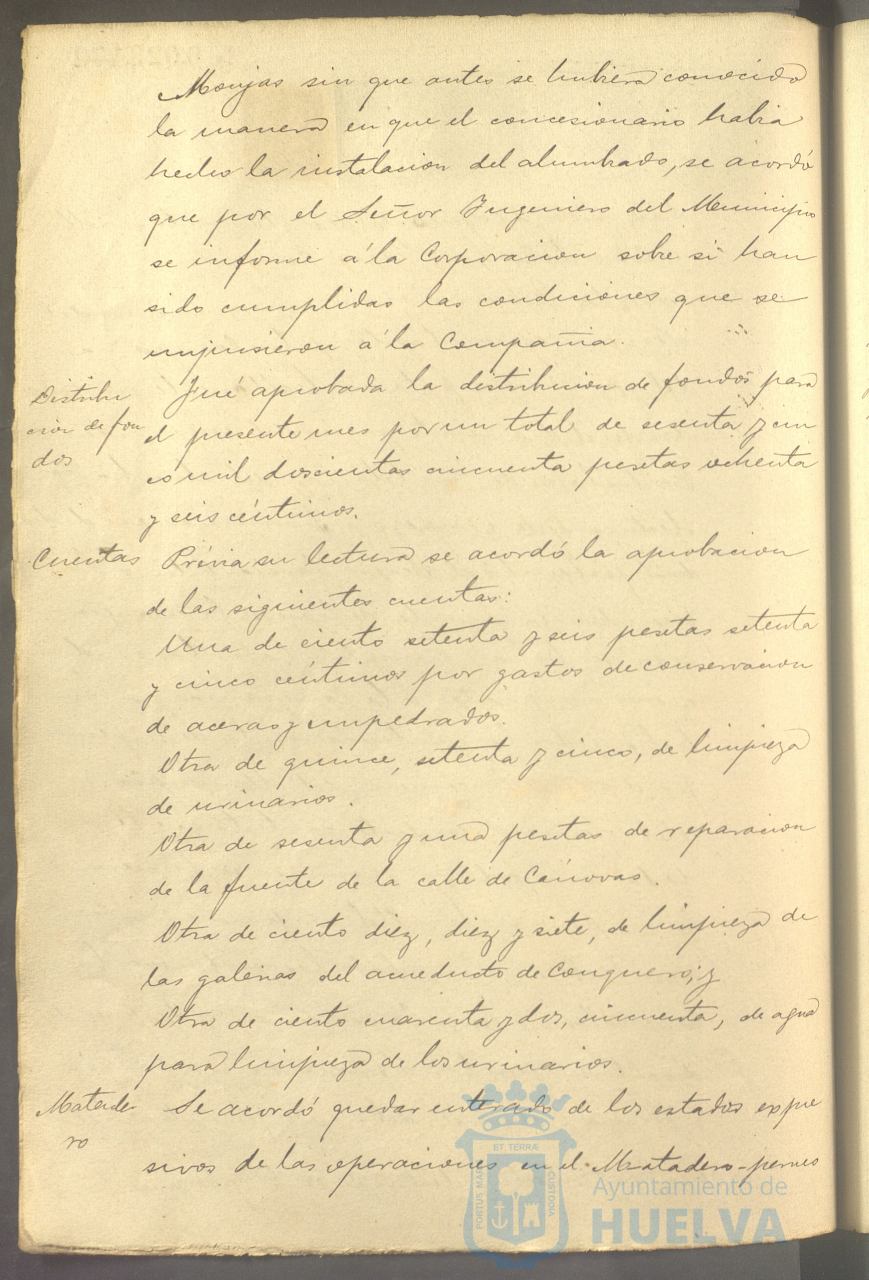 Monjas sin que antes se hubiera conocido
la manera en que el concesionario habia
hecho la instalacion del alumbrado, se acordó
que por el Señor Ingeniero del Municipio
se informe á la Corporacion sobre si han
sido cumplidas las condiciones que se
impusieron á la Compañia.
Distribu
cion de fon
dos
Fué aprobada la distribucion de fondos para
el presente mes por un total de sesenta y cin
co mil doscientas cincuenta pesetas ochenta
y seis céntimos.
Cuentas
Prévia su lectura se acordó la aprobacion
de las siguientes cuentas:
Una de ciento setenta y seis pesetas setenta
y cinco céntimos por gastos de conservacion
de aceras y empedrados.
Otra de quince, setenta y cinco, de limpieza
de urinarios.
Otra de sesenta y una pesetas de reparacion
de la fuente de la calle de Cánovas.
Otra de ciento diez, diez y siete, de limpieza de
las galerias del acueducto de Conquero; y
Otra de ciento cuarenta y dos, cincuenta, de agua
para limpieza de los urinarios.
Matade
ro
Se acordó quedar enterado de los estados expre
sivos de las operaciones en el Matadero
ET TERRÆ
PORTUS MA
CUSTODIA
Ayuntamiento de
HUELVA